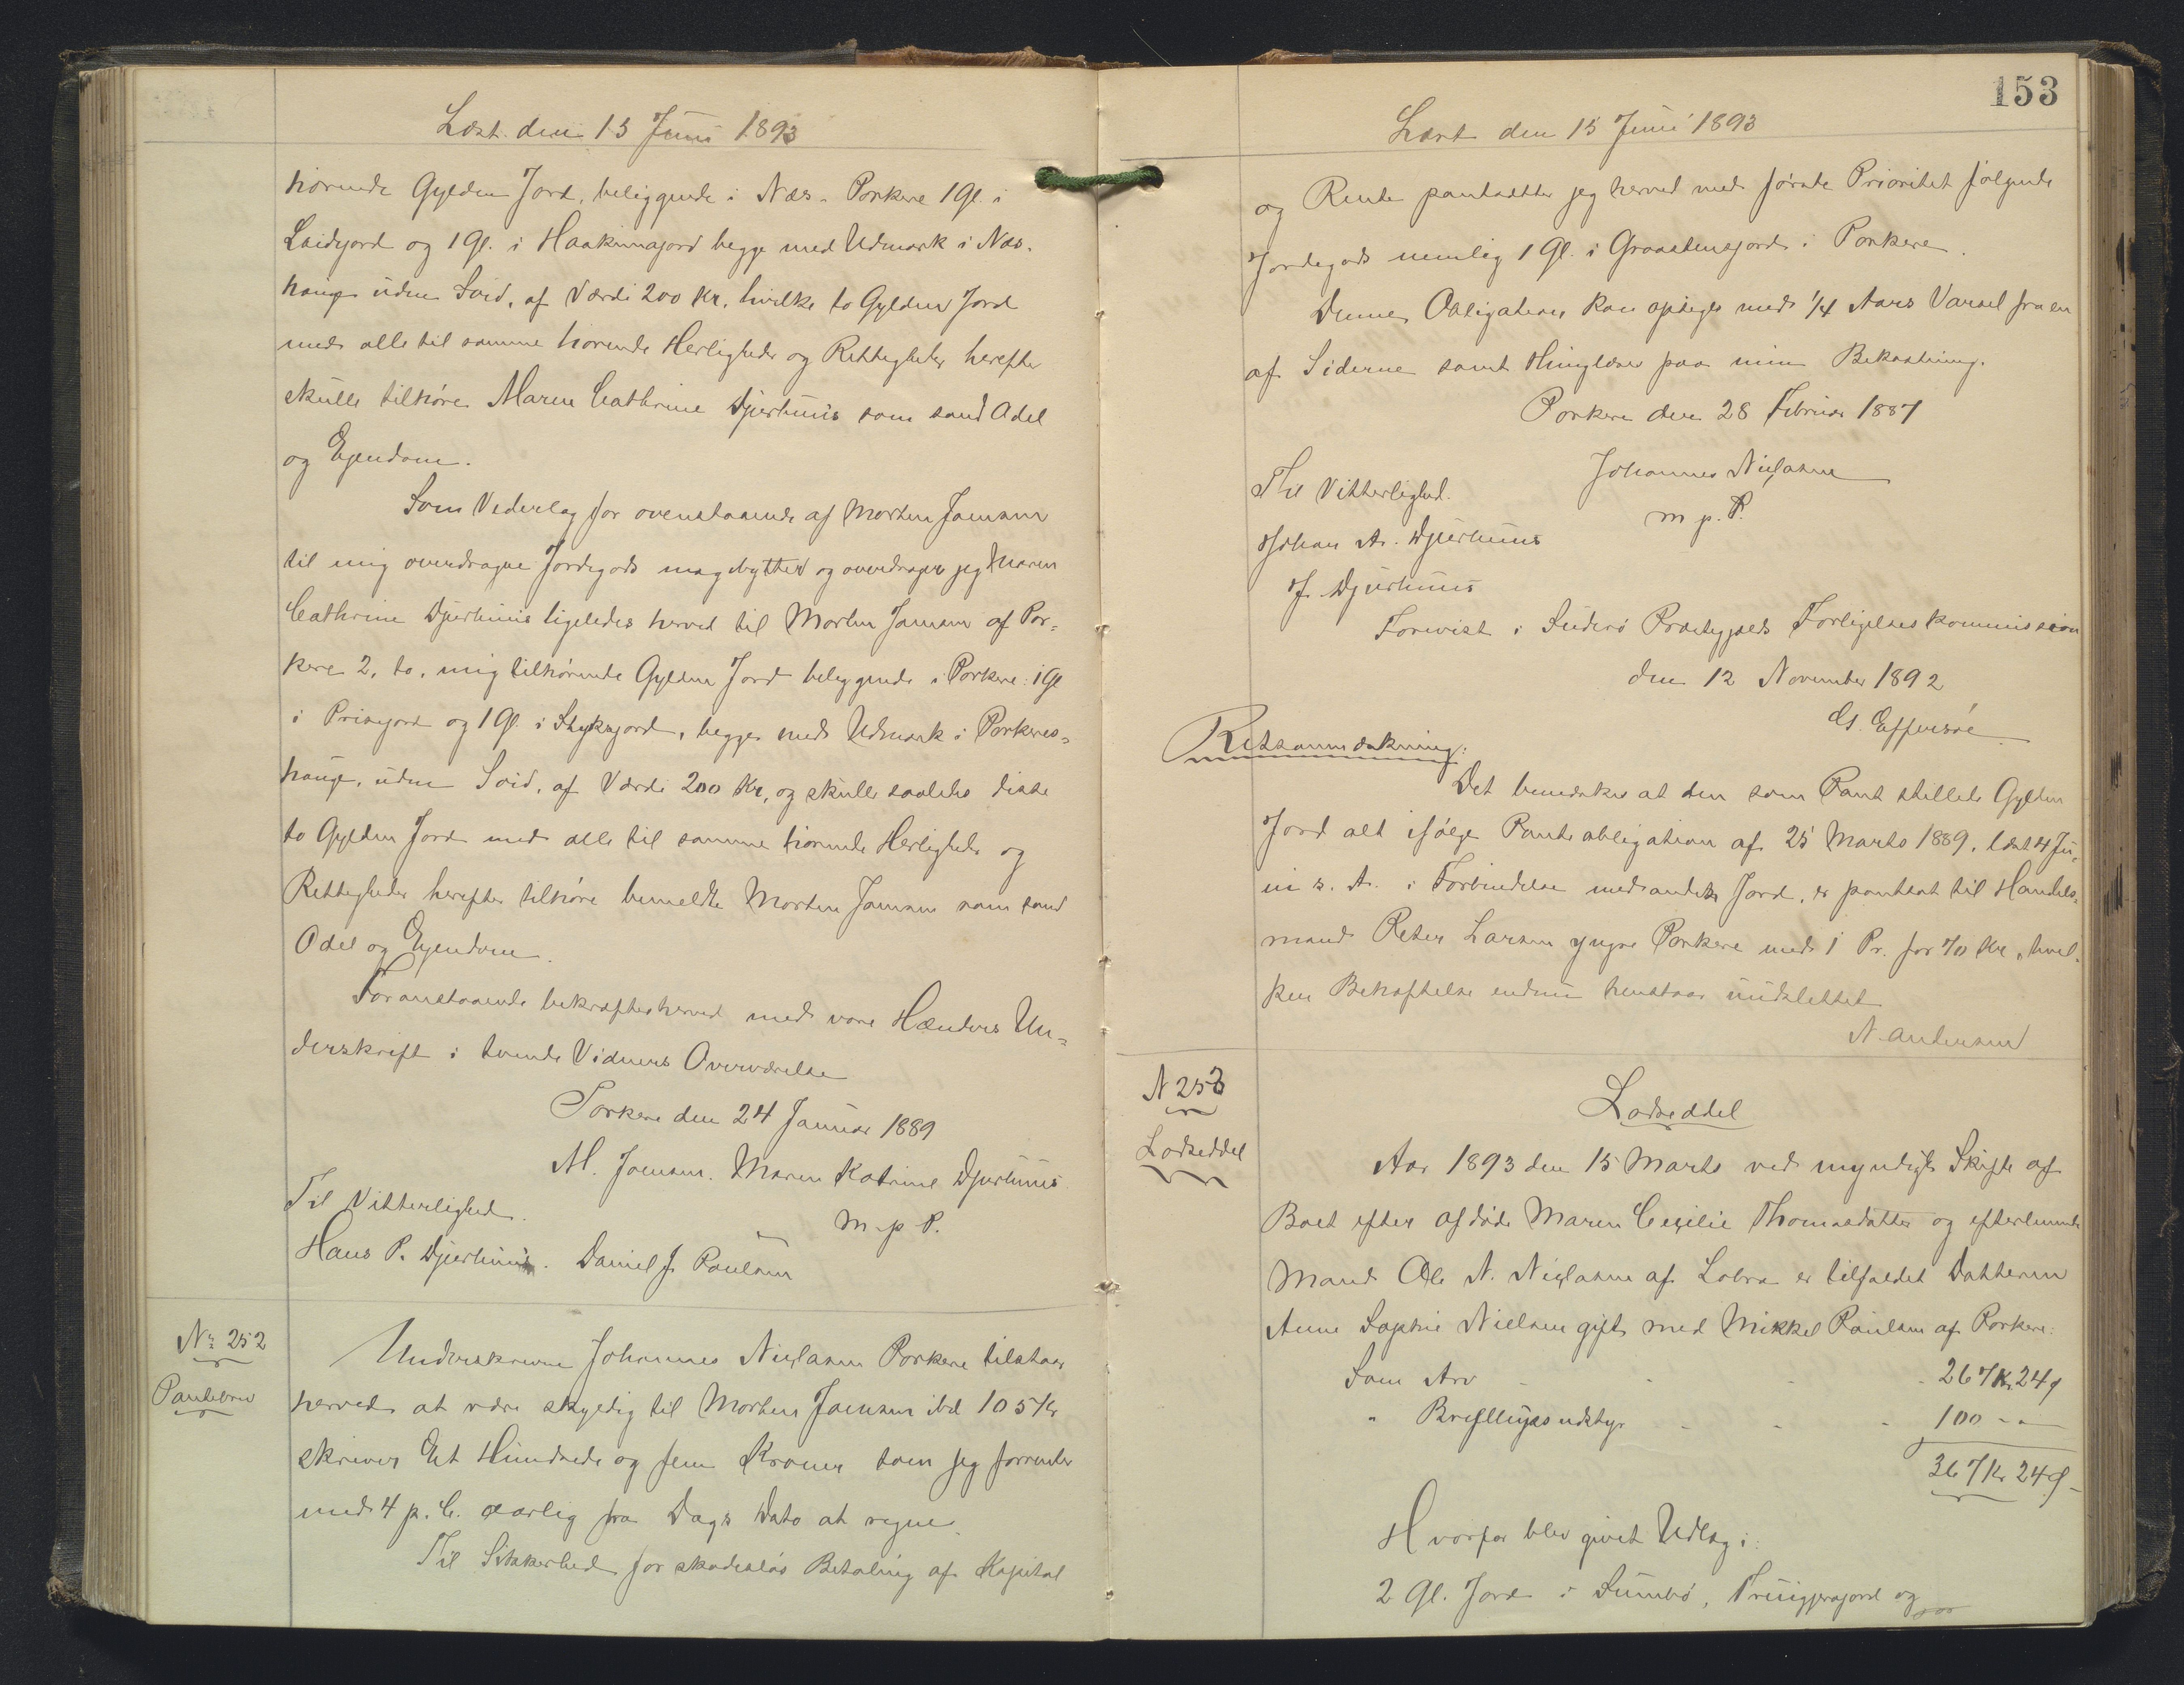 Læst den 15 Juni 1893
hørende Gylden Jord, beliggende i Næs-Porkere 1 Gl. i
Laidjord og 1 Gl. i Haakunajord begge med Udmark i Næs-
hauge uden Soid, af Værdi 200 Kr. hvilke to Gylden Jord
med alle til samme hørende Herligheder og Rettigheder herefter
skulle tilhøre Maren Cathrine Djurhuus som sand Odel
og Ejendom.
Som Vederlag for ovenstaaende af Morten Joensen
til mig overdragne Jordegods magebytter og overdrager jeg Maren
Cathrine Djurhuus ligeledes herved til Morten Joensen af Por-
kere 2, to, mig tilhørende Gylden Jord beliggende i Porkere: 1 Gl
i Prisegjord og 1 Gl. i Styksgjord, begge med Udmark i Porkeres-
hauge, uden Soid, af Værdi 200 Kr, og skulle saaledes disse
to Gylden Jord med alle til samme hørende Herligheder og
Rettigheder herefter tilhøre bemeldte Morten Joensen som sand
Odel og Ejendom.
Foranstaaende bekræftes herved med vore Hænders Un-
derskrift i tvende Vidners Overværelse
Porkere den 24 Januar 1889
M. Joensen. Maren Katrine Djurhuus
m. p. P.
Til Vitterlighed.
Hans P. Djurhuus. Daniel J. Poulsen
Nr 252
Pantebrev
Underskrevne Johannes Niclasen Porkere tilstaar
herved at være skyldig til Morten Joensen ibd 105 Kr
skriver Et Hundrede og fem Kroner som jeg forrenter
med 4 p. C. aarlig fra Dags Dato at regne.
Til Sikkerhed for skadesløs Betaling af Kapital
153
Læst den 15 Juni 1893
og Rente pantsætter jeg herved med første Prioritet følgende
Jordegods nemlig 1 Gl. i Graastensjord i Porkere.
Denne Obligation kan opsiges med 1/4 Aars Varsel fra en
af Siderne samt thinglæses paa min Bekostning.
Porkere den 28 Februar 1887
Johannes Niclasen
m. p. P.
Til Vitterlighed.
Johan A. Djurhuus
J. Djurhuus
Forevist i Suderø Præstegjælds Forligelseskommission
den 12 November 1892
G. Effersøe
Retsanmærkning:
Det bemærkes at den som Pant stillede Gylden
Jord alt ifølge Panteobligation af 25 Marts 1889, læst 4 Ju-
ni s. A. i Forbindelse med anden Jord, er pantsat til Handels-
mand Peter Larsen yngre Porkere med 1 Pr. for 70 Kr, hvil-
ken Behæftelse endnu henstaar uudslettet
N. Andersen
N 253
Lodseddel
Lodseddel
Aar 1893 den 15 Marts ved myndigt Skifte af
Boet efter afdøde Maren Cecilie Thomasdatter og efterlevende
Mand Ole N. Niclasen af Lobra er tilfaldet Datteren
Anne Sophie Nielsen gift med Mikkel Poulsen af Porkere:
Som Arv - - - 267 Kr 24 Ø
" Bryllupsudstyr - - - 100 - -
367 Kr 24 Ø
Hvorfor blev givet Udlæg i:
2 Gl. Jord i Sumbø, Truigjerajord og